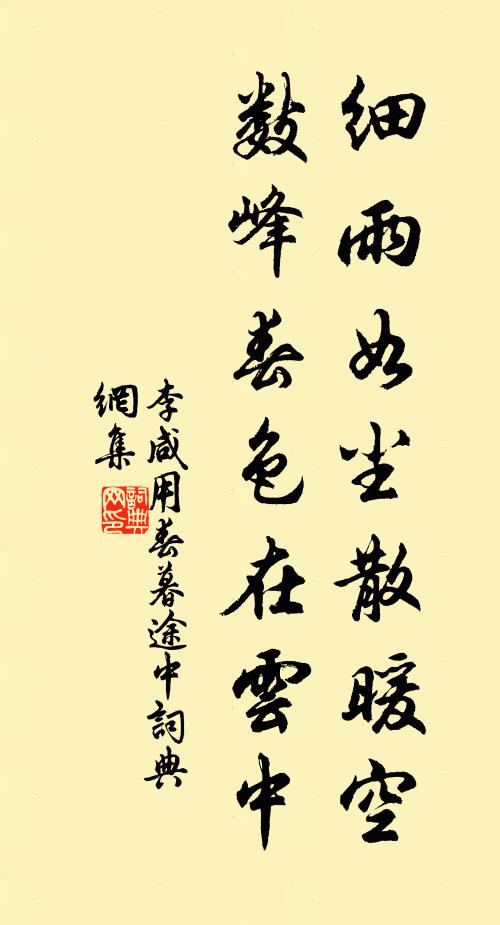 細雨如尘散暖空
數峰春色在雲中
李咸用春暮途中詞典
網集
詞典
网印